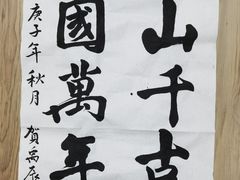 山千古
國萬年
庚子年秋月
賀禹辰